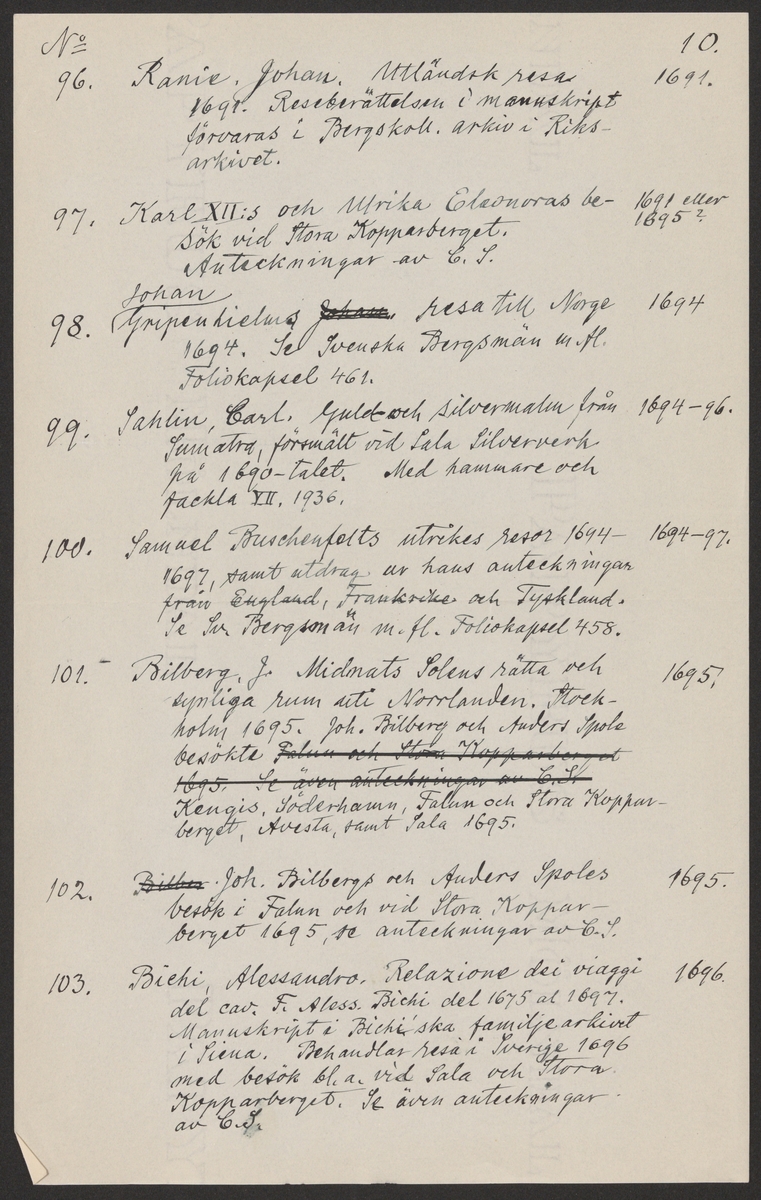 No 10.
96. Ranie, Johan. Utländsk resa 1691.
1691. Reseberättelsen i manuskript
förvaras i Bergskoll. arkiv i Riks-
arkivet.
97. Karl XII:s och Ulrika Eleonoras be- 1691 eller
sök vid Stora Kopparberget. 1695?
Anteckningar av C. S.
Johan
98. Gripenhielms Johans resa till Norge 1694
1694. Se Svenska Bergsmän m. fl.
Foliokapsel 461.
99. Sahlin, Carl. Guld- och silvermalm från 1694-96.
Sumatra, försmält vid Sala Silververk
på 1690-talet. Med hammare och
fackla VII. 1936.
100. Samuel Buschenfelts utrikes resor 1694- 1694-97.
1697, samt utdrag ur hans anteckningar
från England, Frankrike och Tyskland.
Se Sv. Bergsmän m. fl. Foliokapsel 458.
101. Bilberg, J. Midnats Solens rätta och 1695.
synliga rum uti Norrlanden. Stock-
holm 1695. Joh. Bilberg och Anders Spole
besökte Falun och Stora Kopparberget
1695. Se även anteckningar av C. S.
Kengis, Söderhamn, Falun och Stora Koppar-
berget, Avesta, samt Sala 1695.
102. Bilber Joh. Bilbergs och Anders Spoles 1695.
besök i Falun och vid Stora Koppar-
berget 1695, se anteckningar av C. S.
103. Bichi, Alessandro. Relazione dei viaggi 1696.
del cav. F. Aless. Bichi del 1675 al 1697.
Manuskript i Bichi'ska familjearkivet
i Siena. Behandlar resa i Sverige 1696
med besök bl. a. vid Sala och Stora
Kopparberget. Se även anteckningar
av C. S.